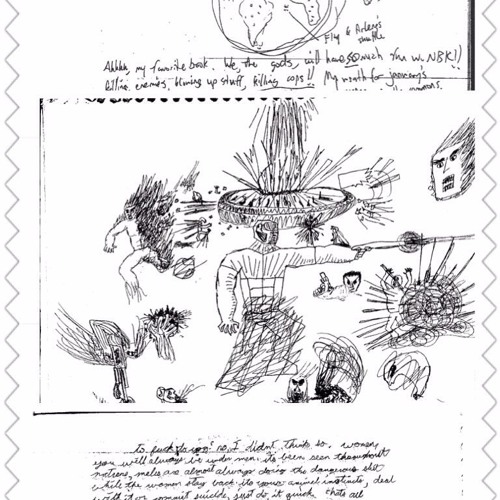 Fly &
shuttle
Ahhhh, my favorite book. We, the gods, will have so much fun w. NBK!!
killing enemies, blowing up stuff, killing cops!! My wrath for january's
no I didnt think so. women,
you will always be under men. its been seen throughout
nature, males are almost always doing the dangerous shit
while the women stay back. its your animal instincts, deal
with it or commit suicide, just do it quick. thats all